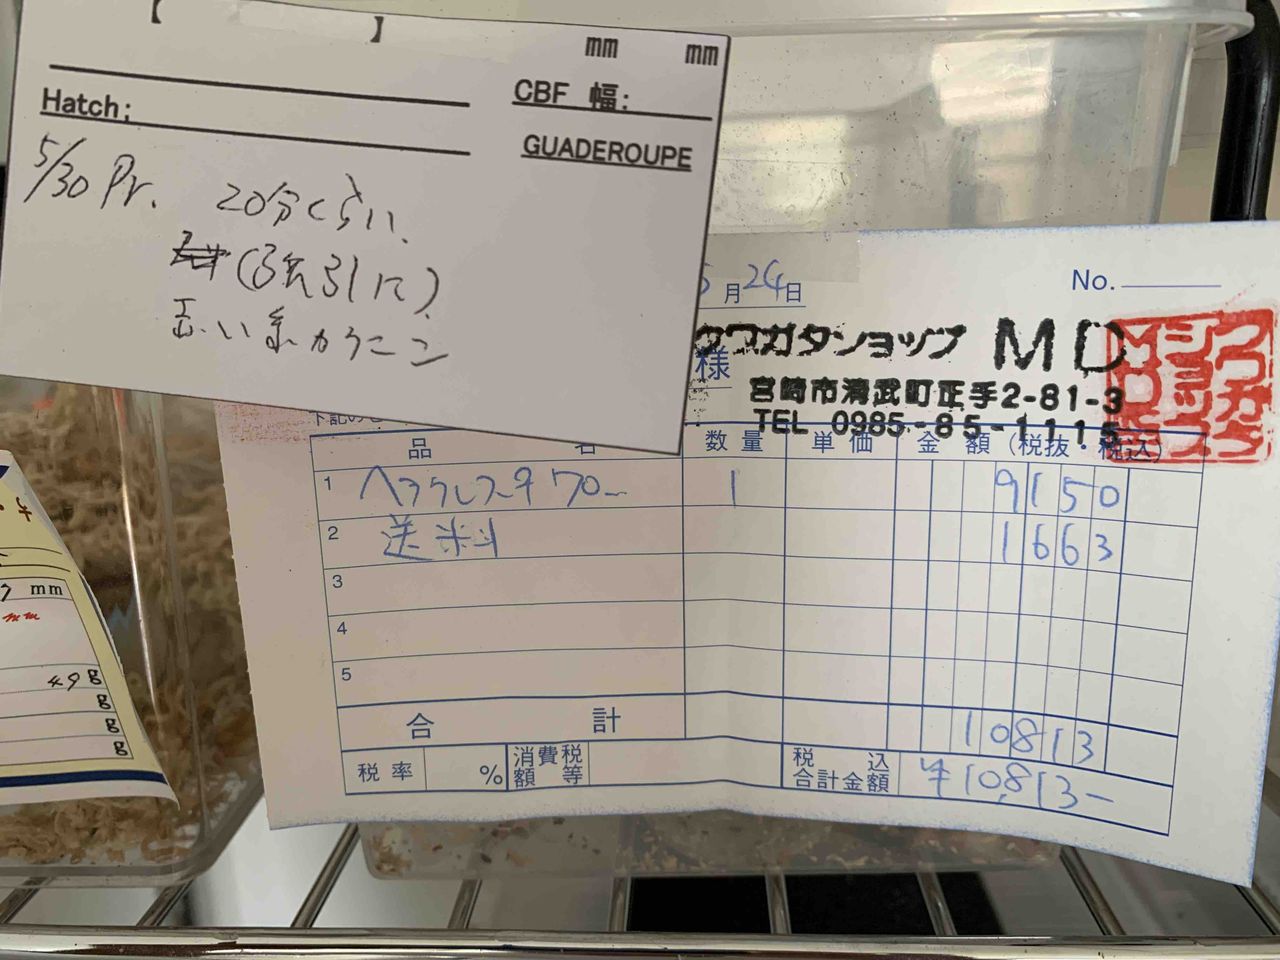 【 】
mm mm
CBF 幅:
Hatch:
GUADEROUPE
5/30 Pr. 20分くらい、
(強引に)
月24日
No.
クワガタショップ MD
様
宮崎市清武町正手2-81-3
TEL 0985-85-1115
クワガタ
ショップ
MD
下記の
品 名 数量 単価 金額(税抜・税込)
1 ヘラクレス♀70 1 9150
2 送料 1663
3
4
5
合 計 10813
税率 % 消費税額等 税込合計金額 ¥10,813-
mm
49 g
g
g
g